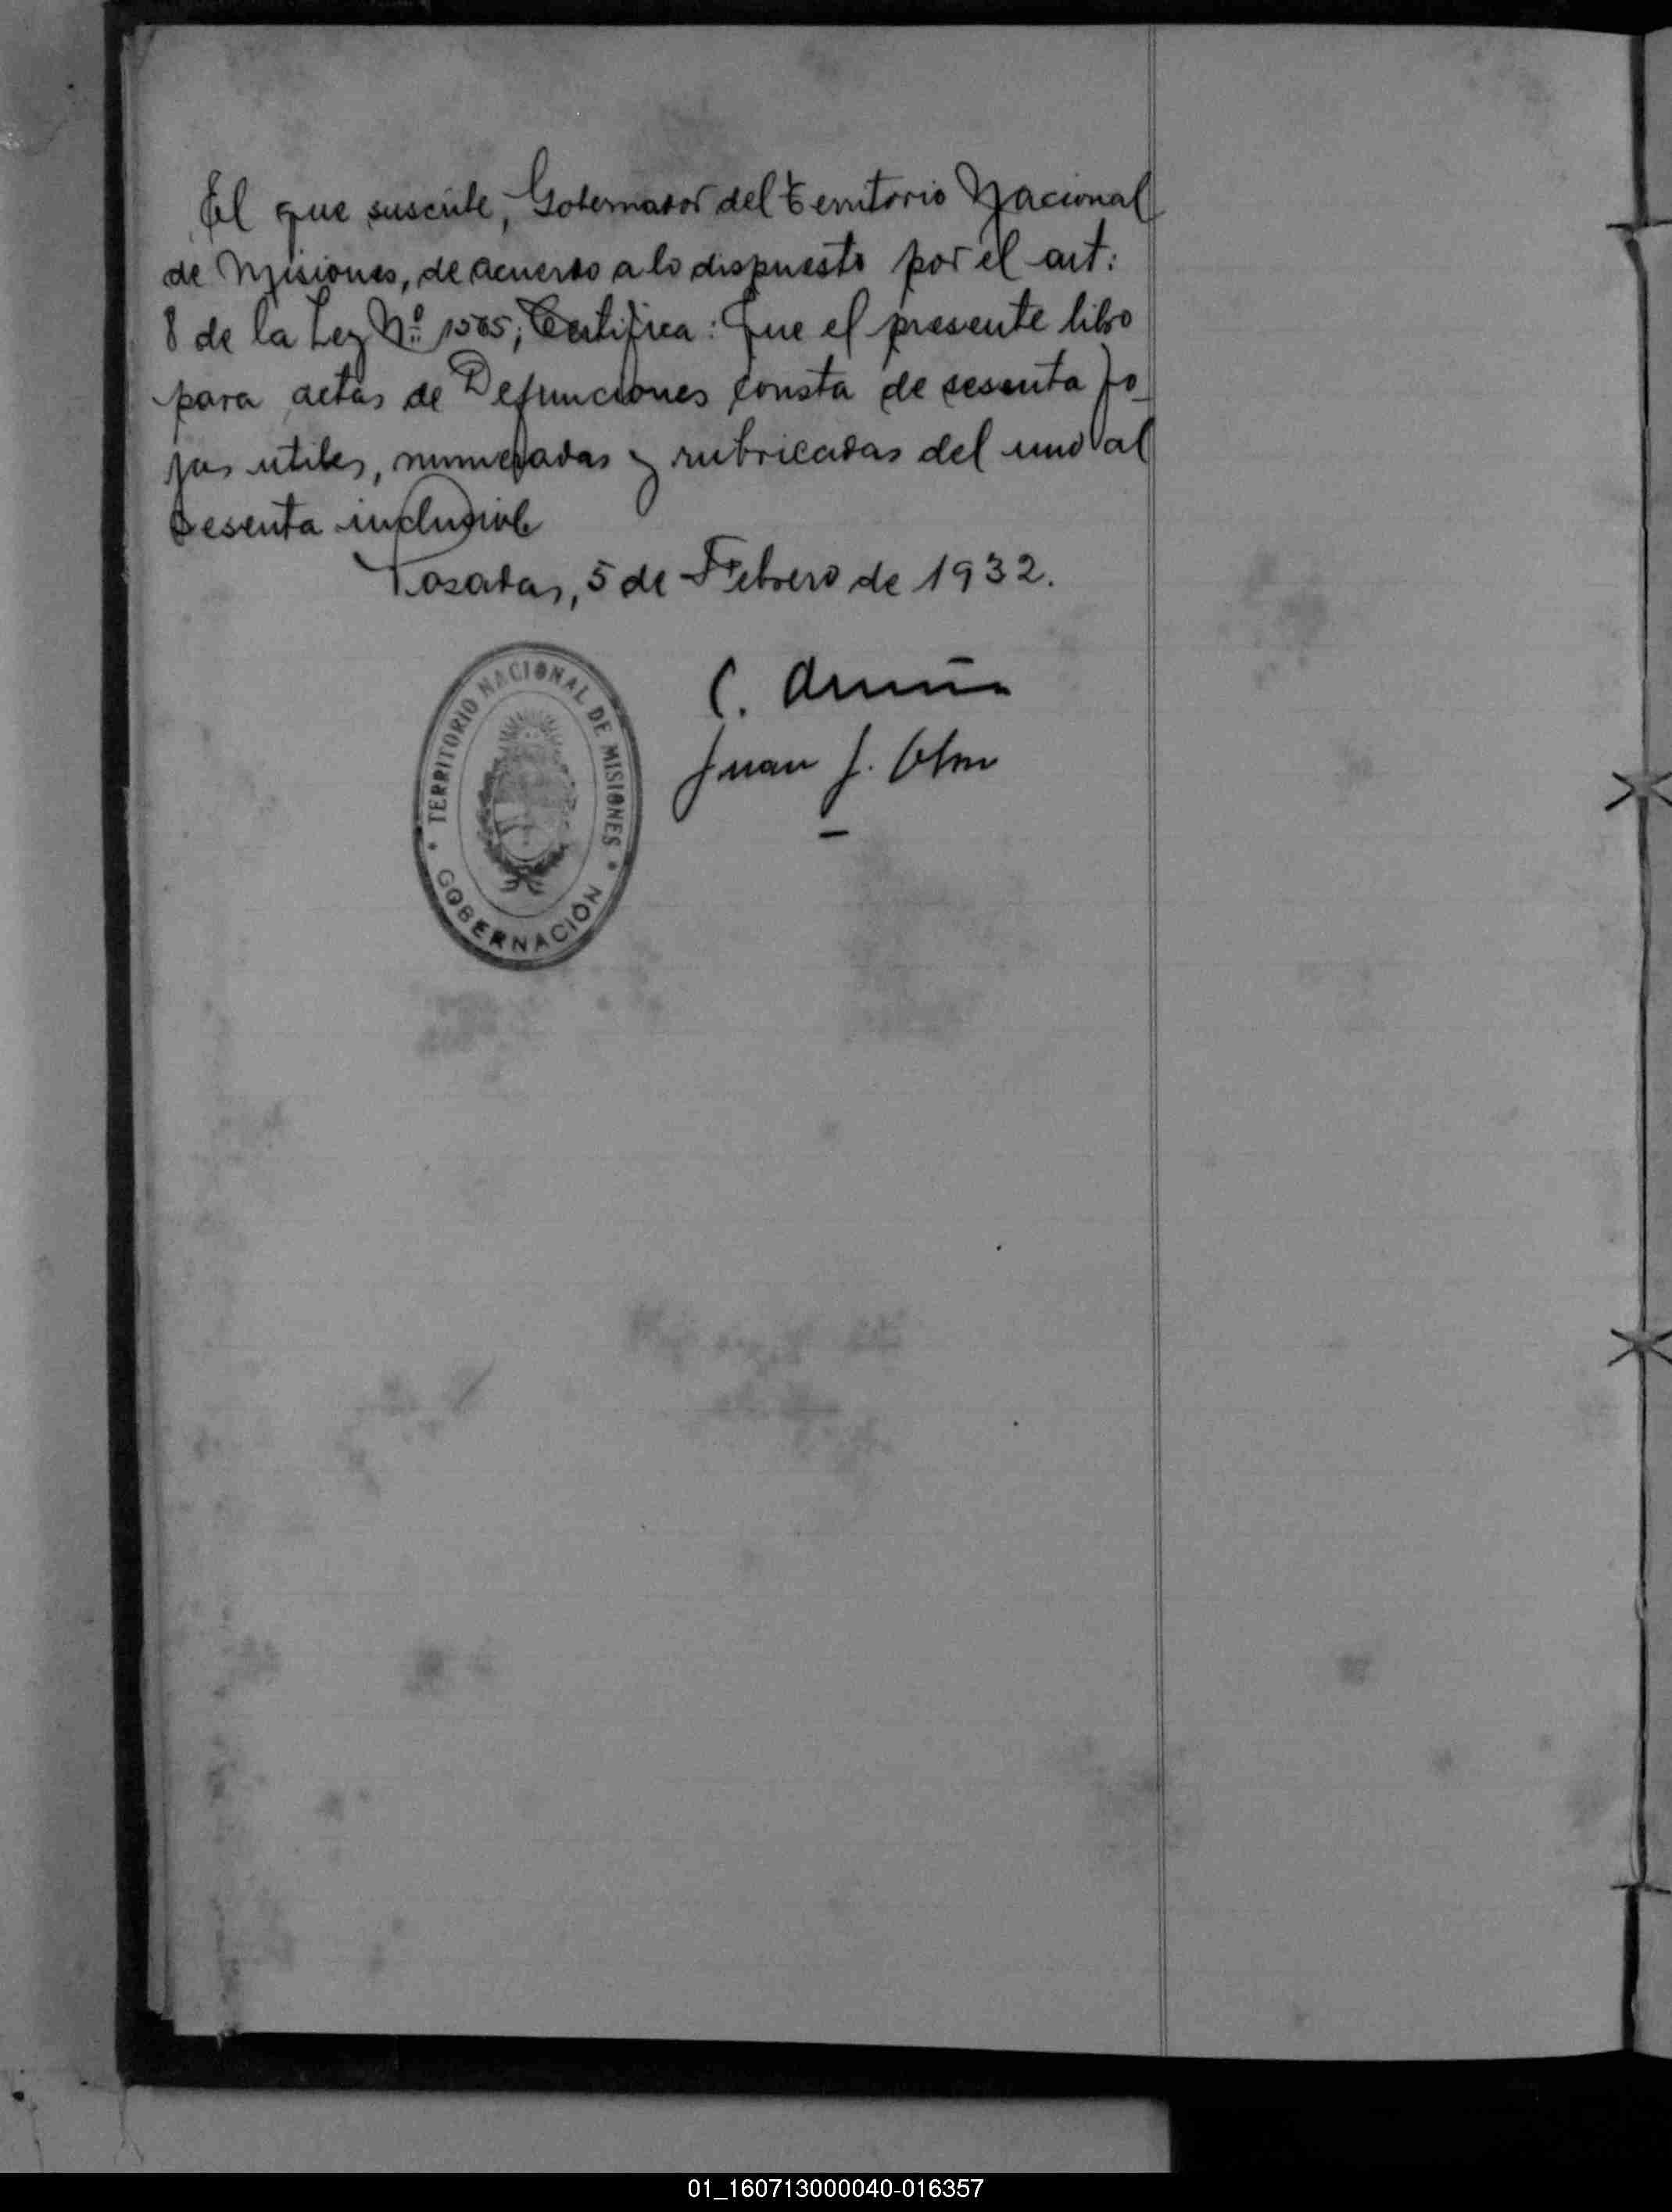 El que suscribe, Gobernador del Territorio Nacional
de Misiones, de acuerdo a lo dispuesto por el art:
8 de la Ley Nº 1565; Certifica: Que el presente libro
para actas de Defunciones consta de sesenta fo-
jas utiles, numeradas y rubricadas del uno al
sesenta inclusive
Posadas, 5 de Febrero de 1932.
C. Acuña
Juan J.
TERRITORIO NACIONAL DE MISIONES
GOBERNACIÓN
01_160713000040-016357